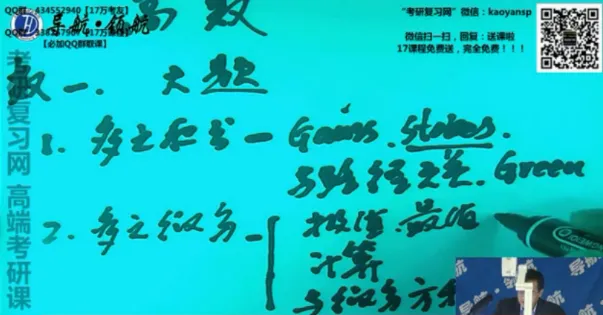 QQ群：434552940【17万考友】
【必加QQ群联课】
导航·领航
"考研复习网"微信：kaoyansp
微信扫一扫，回复：送课啦
17课程免费送，完全免费！！！
考研复习网 高端考研课
高数
数一. 大题
1. 多元积分— Gauss. Stokes.
与路径无关. Green
2. 多元微分—
极值. 最值
计算
与微分方